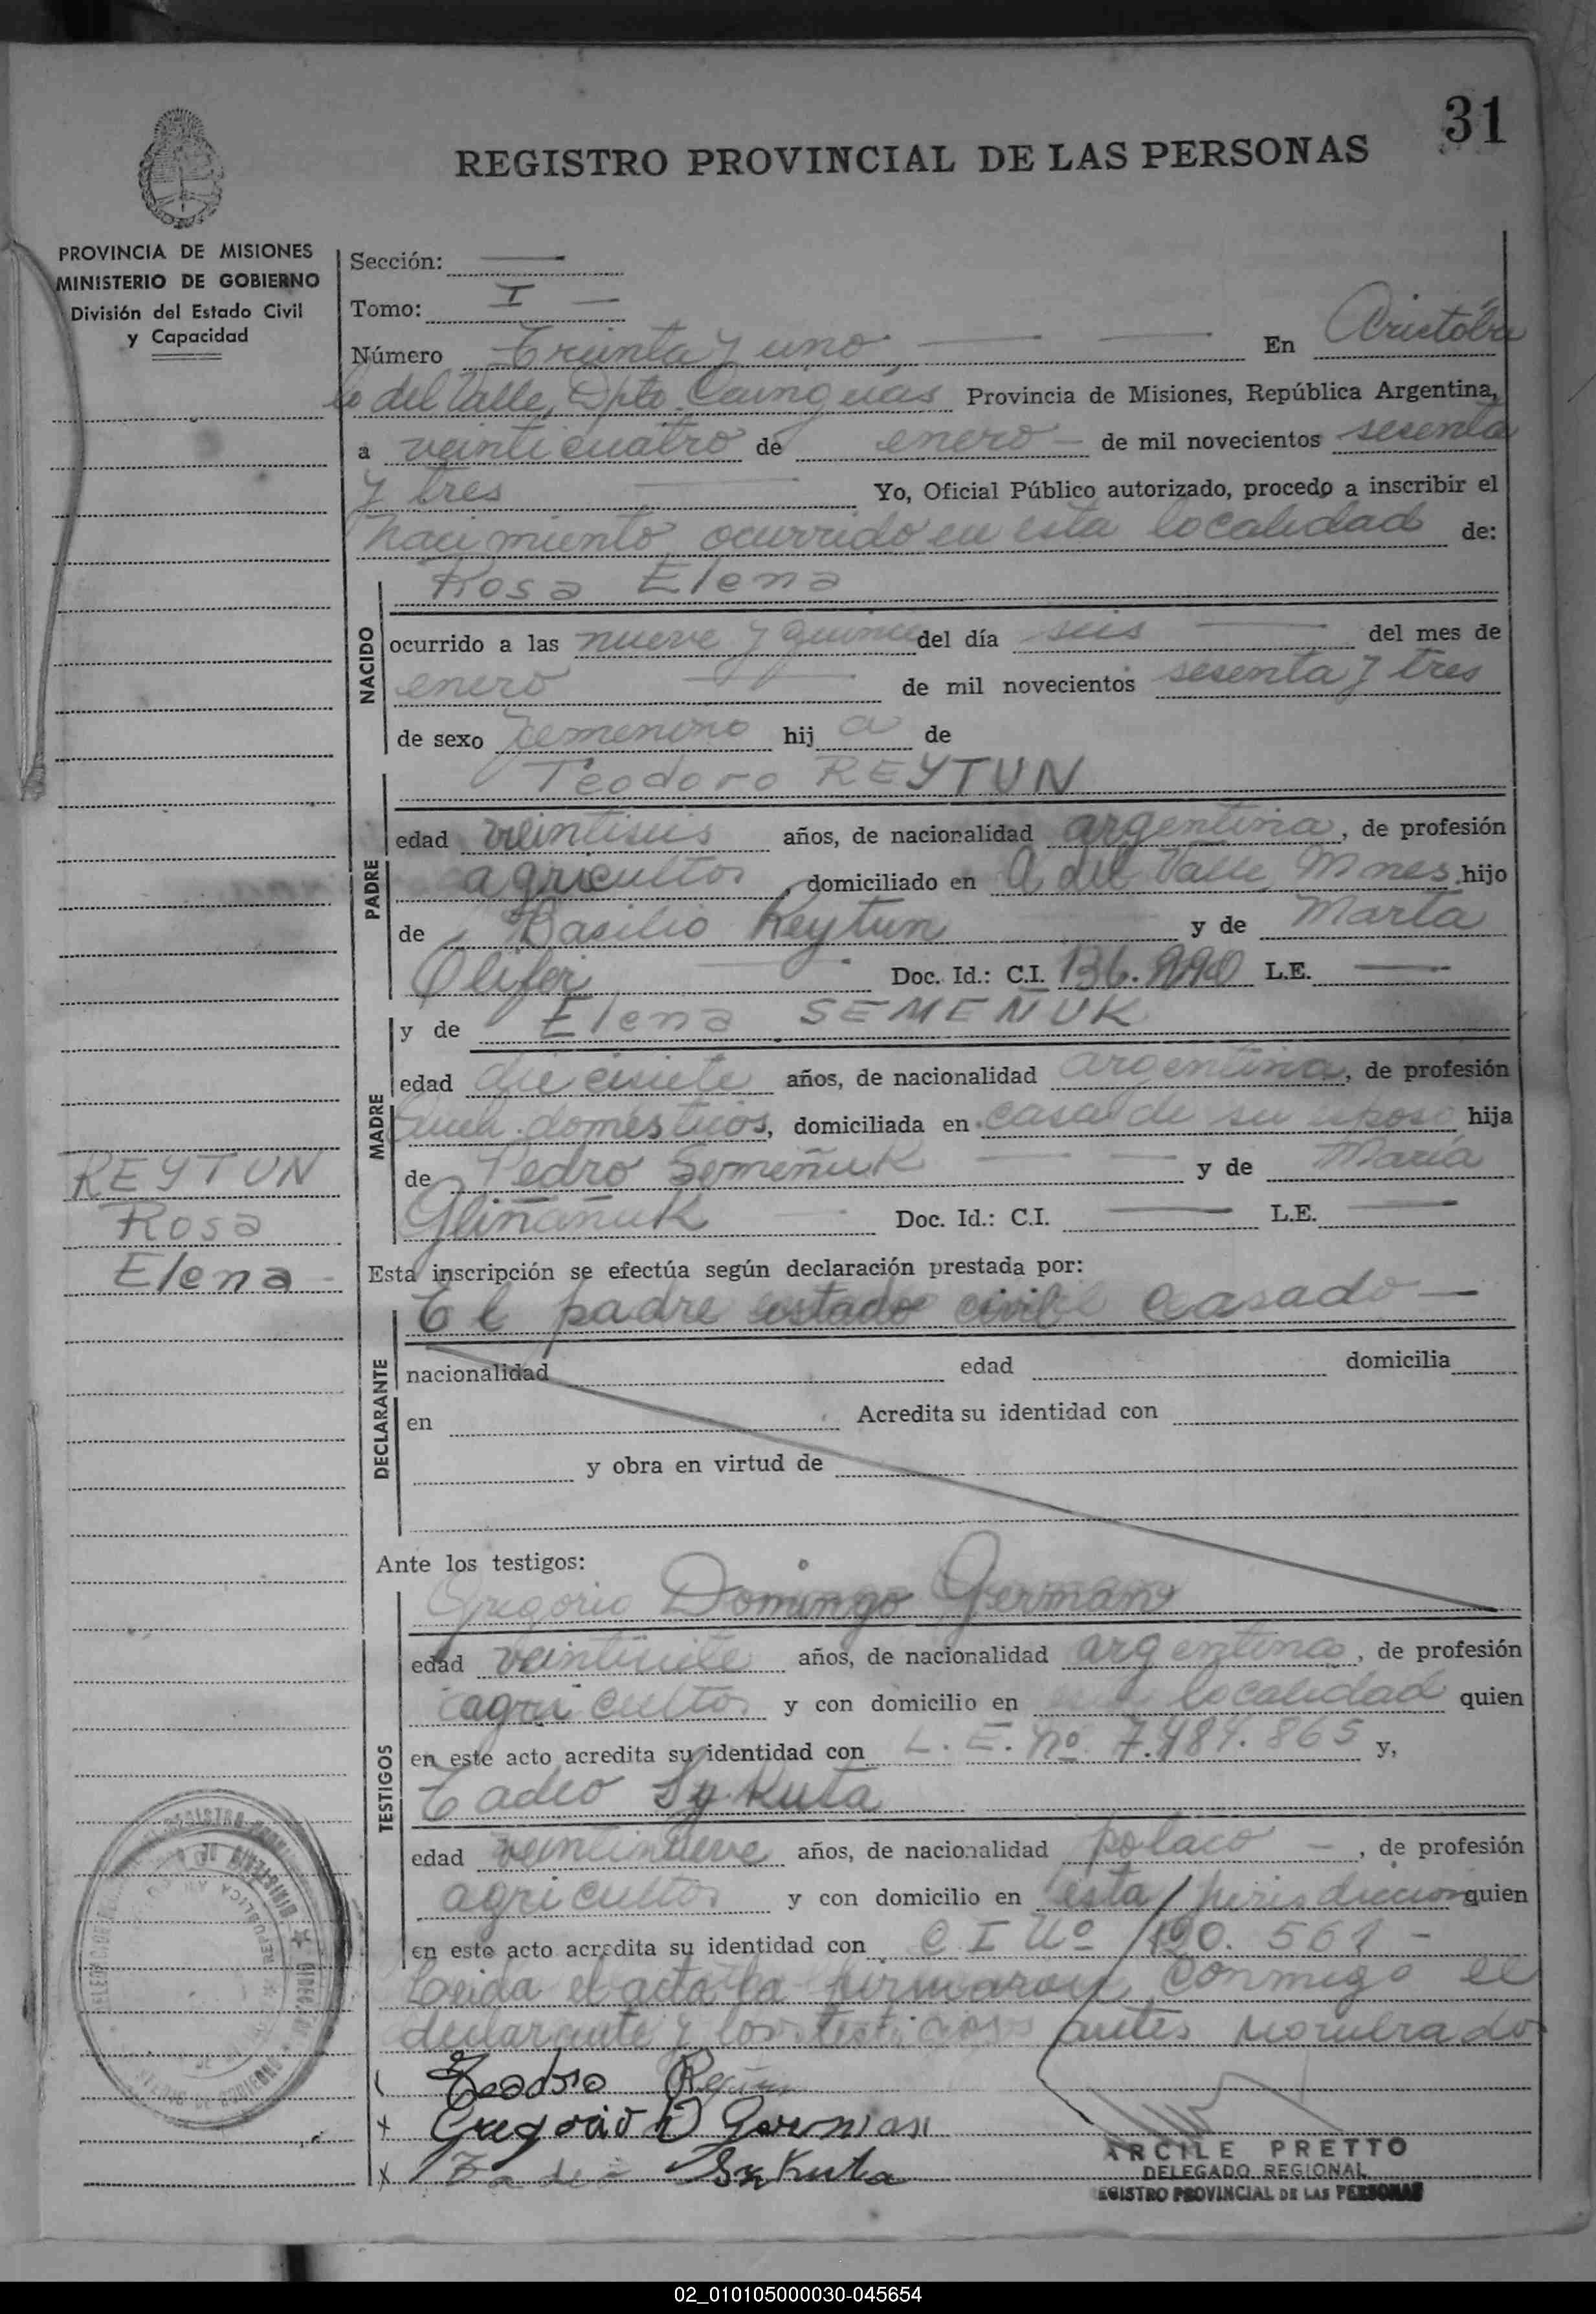 31
REGISTRO PROVINCIAL DE LAS PERSONAS
PROVINCIA DE MISIONES
MINISTERIO DE GOBIERNO
División del Estado Civil
y Capacidad
Sección: —
Tomo: I —
Número Treinta y uno — — En Aristóbu
lo del Valle, Dpto. Cainguás Provincia de Misiones, República Argentina,
a veinticuatro de enero — de mil novecientos sesenta
y tres — Yo, Oficial Público autorizado, procedo a inscribir el
nacimiento ocurrido en esta localidad de:
NACIDO
Rosa Elena
ocurrido a las nueve y quince del día seis — del mes de
enero — de mil novecientos sesenta y tres
de sexo femenino hij a de
PADRE
Teodoro REYTUN
edad veintiseis años, de nacionalidad argentina, de profesión
agricultor, domiciliado en A del Valle, Mnes. hijo
de Basilio Reytun y de Marta
Olifer — Doc. Id.: C.I. 136. L.E. —
MADRE
y de Elena SEMEÑUK
edad diecisiete años, de nacionalidad argentina, de profesión
domésticos, domiciliada en casa de su esposo hija
de Pedro Semeñuk — — y de María
Gliñañuk — Doc. Id.: C.I. — L.E. —
REYTUN
Rosa
Elena —
Esta inscripción se efectúa según declaración prestada por:
DECLARANTE
El padre estado civil casado —
nacionalidad edad domicilia
en Acredita su identidad con
y obra en virtud de
Ante los testigos:
TESTIGOS
Gregorio Domingo German
edad veintisiete años, de nacionalidad argentino, de profesión
agricultor y con domicilio en localidad quien
en este acto acredita su identidad con L. E. nº 7.484.865 y,
Tadeo Sykuta
edad veintinueve años, de nacionalidad polaco —, de profesión
agricultor y con domicilio en esta jurisdiccion quien
en este acto acredita su identidad con C I Nº 190. 561 —
Leida el acta la firmaron conmigo el
declarante y los testigos antes nombrado
Teodoro
x Gregorio D German
x Tadeo Sykuta
ARCILE PRETTO
DELEGADO REGIONAL
REGISTRO PROVINCIAL DE LAS PERSONAS
02_010105000030-045654